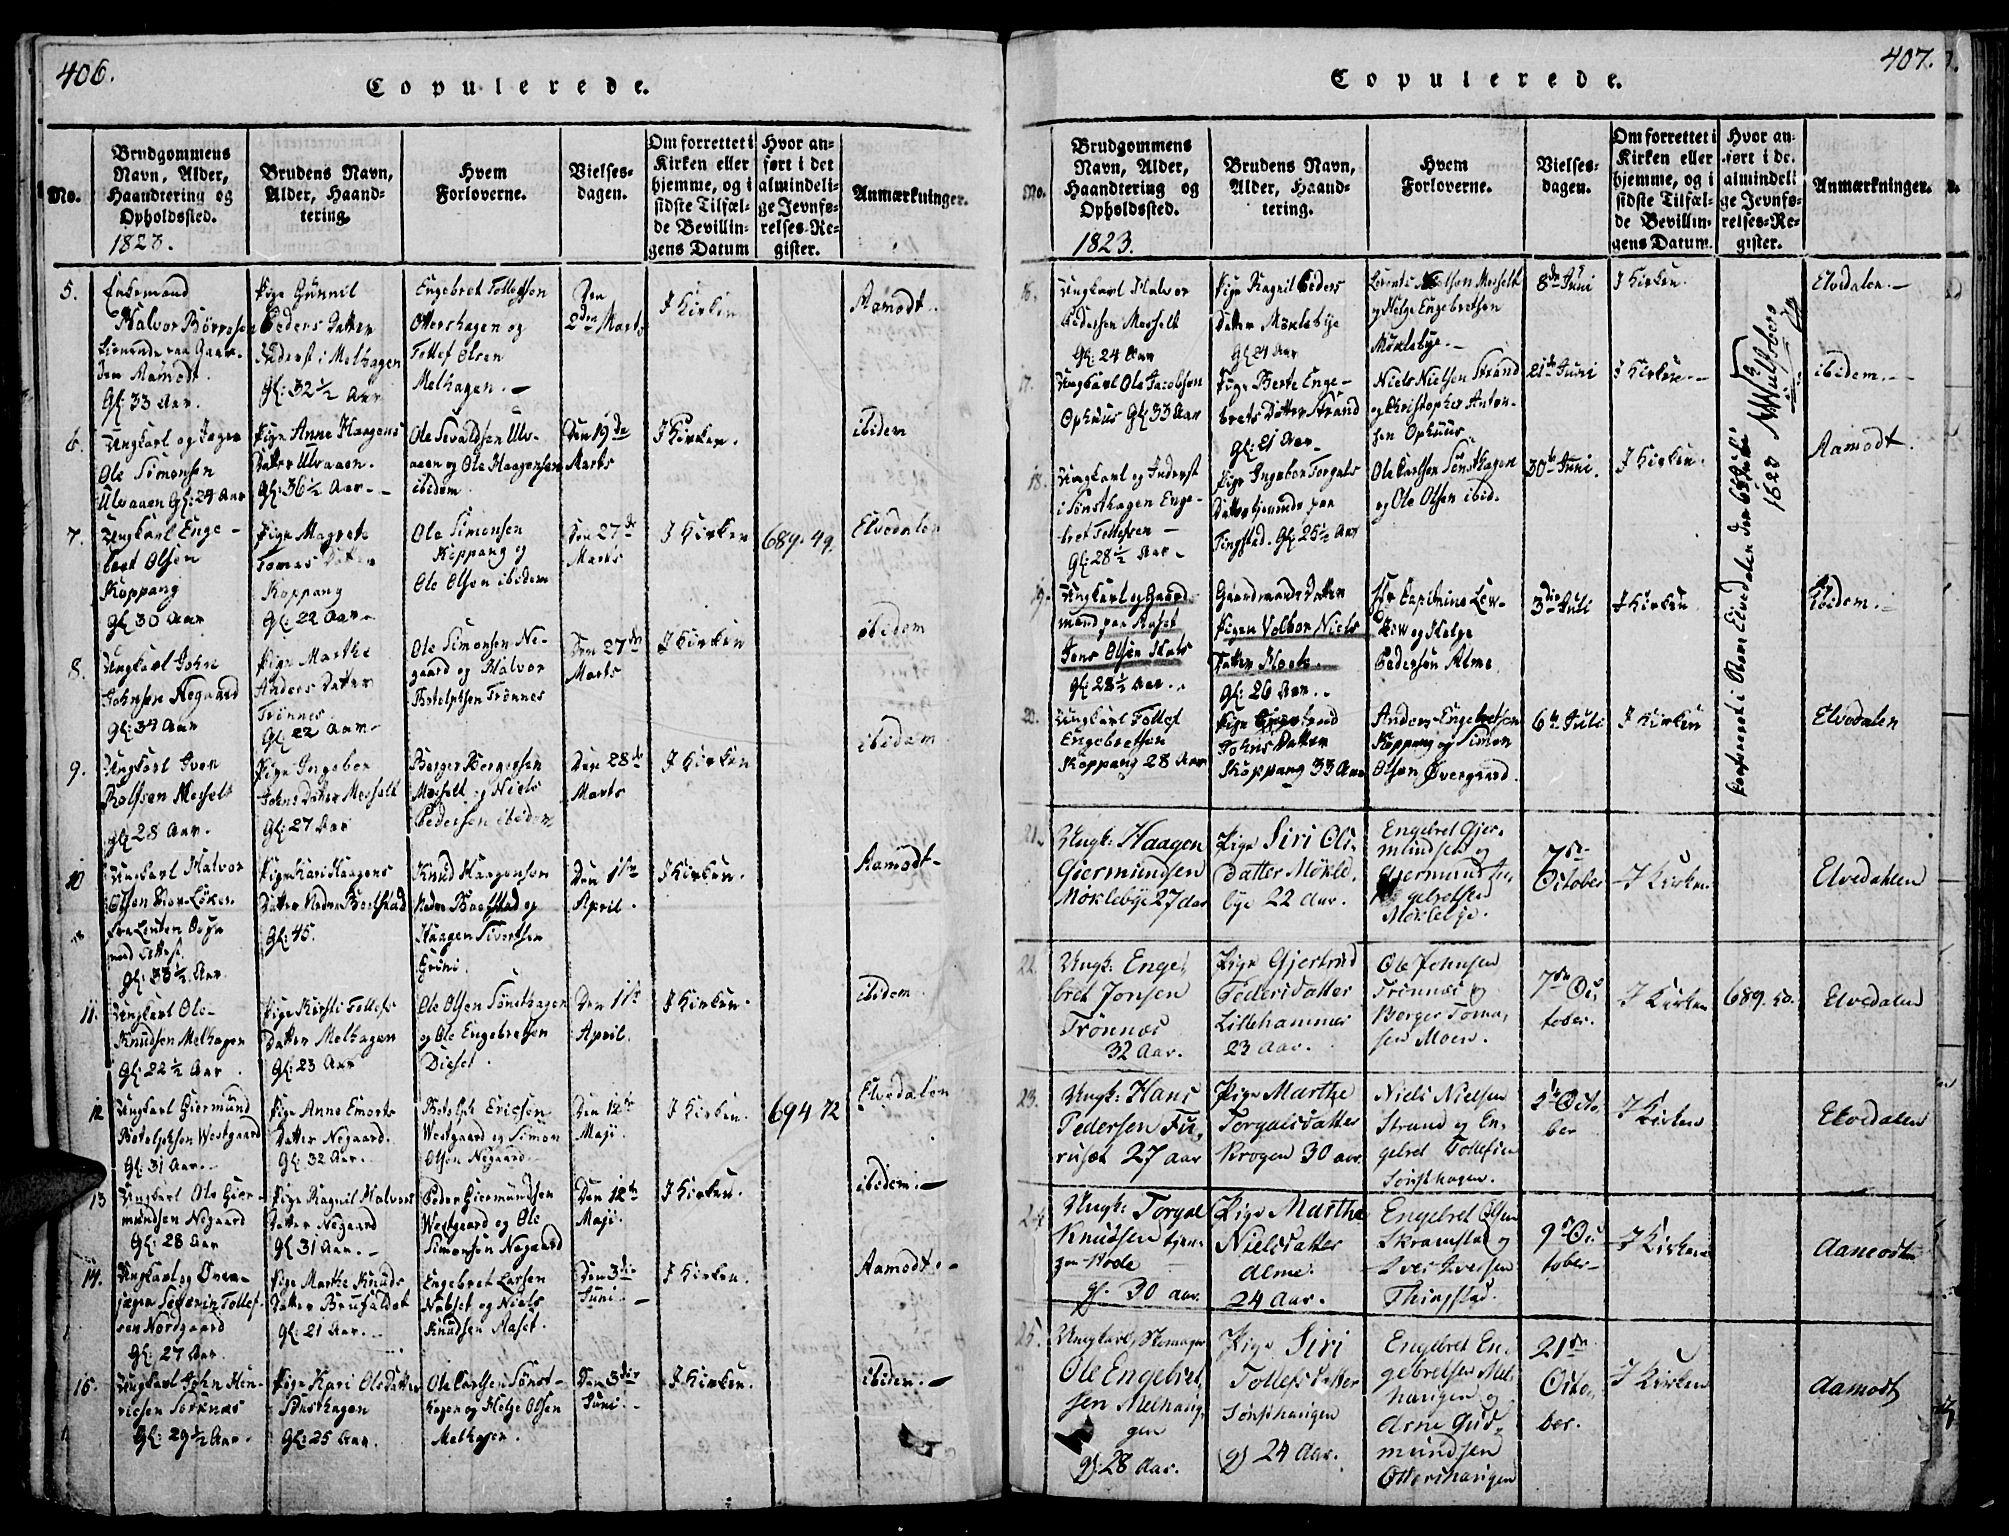 406.
Copulerede.
No.
Brudgommens
Navn, Alder,
Haandtering og
Opholdssted.
1823.
Brudens Navn,
Alder, Haand-
tering.
Hvem
Forloverne.
Vielses-
dagen.
Om forrettet i
Kirken eller
hjemme, og i
sidste Tilfæl-
de Bevillin-
gens Datum
Hvor an-
ført i det
almindeli-
ge Jevnfø-
relses-Re-
gister.
Anmærkninger.
5.
Enkemand
Halvor
Gl: 33 Aar.
Pige Gunnil
Peders Datter
Inderst i Melhagen
Gl: 32½ Aar
Engebret Tollefsen
Ottershagen og
Tollef Olsen
Melhagen.
Den
2den Marts
I Kirken
Aamodt.
6.
Ungkarl og Jæger
Ole Simonsen
Ulvaaen Gl: 24 Aar
Pige Anne Haagens
Datter Ulvaaen.
Gl: 36½ Aar.
Ole Sevaldsen Ulv-
aaen og Ole Haagensen
ibidem
Den 19de
Marts
I Kirken.
ibidem
7.
Ungkarl Enge-
bret Olsen
Koppang
Gl 30 Aar
Pige Magrete
Tomas Datter
Koppang
Gl: 22 Aar
Ole Simonsen
Koppang og
Ole Olsen ibidem
Den 27de
Marts
I Kirken
689. 49.
Elvedalen
8.
Ungkarl John
Johnsen Negaard
Gl: 34 Aar
Pige Marthe
Anders Datter
Trønnes
Gl 22 Aar
Ole Simonsen Ne-
gaard og Halvor
Botolphsen Trønnes
Den 27de
Marts
I Kirken
ibidem
9.
Ungkarl Iven
Rolfsen Messelt
gl 28 Aar.
Pige Ingebor
Johns Datter Messelt
Gl: 27 Aar
Berger Bergersen
Messelt og Niels
Pedersen ibidem
Den 28de
Marts
I Kirken
ibidem
10
Ungkarl Halvor
Olsen
Gl: 33½ Aar
Pige Kari Haagens
Datter Nedre Bolstad
Gl: 45.
Knud Haagensen
Nedre Bolstad og
Haagen Sivertsen
Grini
Den 1ste
April.
I Kirken.
Aamodt
11.
Ungkarl Ole
Knudsen Melhagen
Gl: 22½ Aar
Pige Kirsti Tollefs
Datter Melhagen
Gl: 23 Aar
Ole Olsen Sønsthagen
og Ole Engebretsen
Dieset.
Den 1ste
April.
I Kirken.
ibidem
12
Ungkarl Giermund
Botolphsen Westgaard
Gl: 31 Aar.
Pige Anne Emorts
Datter Negaard.
Gl: 32 Aar.
Botolph Ericsen
Westgaard og Simon
Olsen Negaard
Den 12te
Maji.
I Kirken.
694 72
Elvedalen
13
Ungkarl Ole Gier-
mundsen Negaard
Gl: 28 Aar
Pige Ragnil Halvors
Datter Negaard
Gl 31 Aar.
Peder Giermundsen
Westgaard og Ole
Simonsen Negaard
Den 12te
Maji.
I Kirken.
ibidem.
14.
Ungkarl og
Severin Tollef-
sen Nordgaard
Gl: 27 Aar
Pige Marthe Knuds
Datter
Gl: 21 Aar.
Engebret Larsen
Nabset og Niels
Knudsen Aaset.
Den 3die
Juni.
I Kirken.
Aamodt.
15.
Ungkarl John Hen-
ricsen Sorknæs
Gl: 29½ Aar.
Pige Kari Olsdatter
Sønsthagen
Gl: 25 Aar.
Ole Carlsen Sønst-
hagen og Helge Olsen
Melhagen.
Den 3die
Juni.
I Kirken.
ibidem.
407.
Copulerede.
No.
Brudgommens
Navn, Alder,
Haandtering og
Opholdssted.
1823.
Brudens Navn,
Alder, Haand-
tering.
Hvem
Forloverne.
Vielses-
dagen.
Om forrettet i
Kirken eller
hjemme, og i
sidste Tilfæl-
de Bevillin-
gens Datum.
Hvor an-
ført i det
almindeli
ge Jevnfø-
relses-Re-
gister.
Anmærkninger.
16.
Ungkarl Halvor
Pedersen Messelt
Gl: 24 Aar
Pige Ragnil Peders
Datter Møklebye
Gl 24 Aar
og Helge Engebretsen
Møklebye.
8de Juni
I Kirken.
Elvdalen.
17.
Ungkarl Ole Jacobsen
Ophuus Gl 33 Aar
Pige Berte Enge-
brets Datter Strand
Gl: 21 Aar
Niels Nielsen Strand
og Christopher Anton-
sen Ophuus
21de Juni
I Kirken.
ibidem.
18.
Ungkarl og Inderst
i Sønsthagen Enge-
bret Tollefsen
Gl: 28½ Aar
Pige Ingebor Torgals
Datter tjenende paa
Tingstad. Gl: 25½ Aar
Ole Carlsen Sønsthagen
og Ole Olsen ibid.
30te Juni.
I Kirken.
Aamodt.
19.
Ungkarl og Gaard
mand paa Aaset
Jens Olsen
Gl: 28½ Aar.
Gaardmands Datter
Pigen Volbor Niels
Datter Hoel
Gl: 26 Aar.
Hr Capitaine Low-
zow og Helge
Pedersen Alme
3die Juli
I Kirken.
Ibidem.
20.
Ungkarl Tollef
Engebretsen
Koppang 28 Aar
Pige Gjertrud
Johns Datter
Koppang 33 Aar
Anders Engebretsen
Koppang og Simon
Olsen Øvergaard.
6te Juli
I Kirken
Elvedalen
21.
Ungk: Haagen
Giermundsen
Møklebye 27 Aar
Pige Siri Ols-
datter Møkle-
bye 22 Aar.
Engebret Gjer-
mundsen og
Gjermund En-
gebretsen
Møklebye.
7de
October
I Kirken
Elvedahlen
22.
Ungk: Enge-
bret Jonsen
Trønnæs
32 Aar.
Pige Gjertrud
Pedersdatter
Lillehammer
23 Aar.
Ole Johnsen
Trønnæs og
Berger Toma-
sen Moen.
7de Oc-
tober.
I Kirken
689. 50.
Elvedalen
23.
Ungk: Hans
Pedersen Fu-
rusæt 27 aar
Pige Marthe
Torgalsdatter
Krogen 30 aar
Niels Nielsen
Strand og En-
gebret Tollefsen
Sønsthagen.
Octo-
ber
I Kirken
Elvedalen
24
Ungk: Torgal
Knudsen
gl. 30 aar
Pige Marthe
Nielsdatter
Alme.
24 Aar.
Engebret Olsen
Skramstad og
Iver Iversen
Thingstad.
9de Oc-
tober
I Kirken
Aamodt
25.
Ungkarl
Ole Engebret-
sen Melhau-
gen
gl 28 Aar.
Pige Siri
Tollefsdatter
Sønsthaugen
gl 24 Aar.
Engebret En-
gebretsen Mel-
haugen og
Arne Gud-
mundsen
Ottershaugen
21de
Octo-
ber.
I Kirken
Aamodt